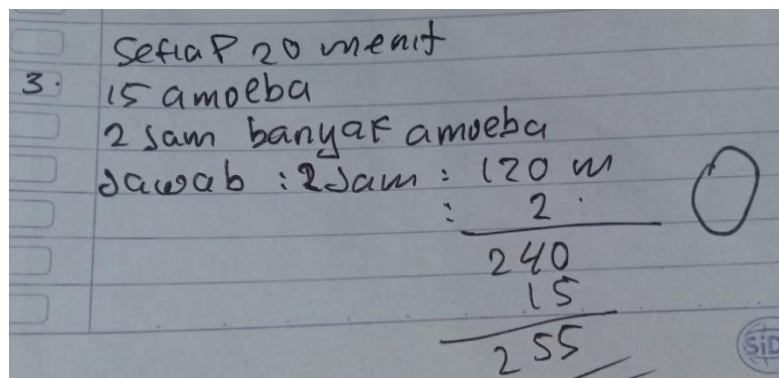 Setiap 20 menit
3. 15 amoeba
2 Jam banyak amoeba
Jawab : 2 Jam : 120 m
: 2
240
15
255
SiD